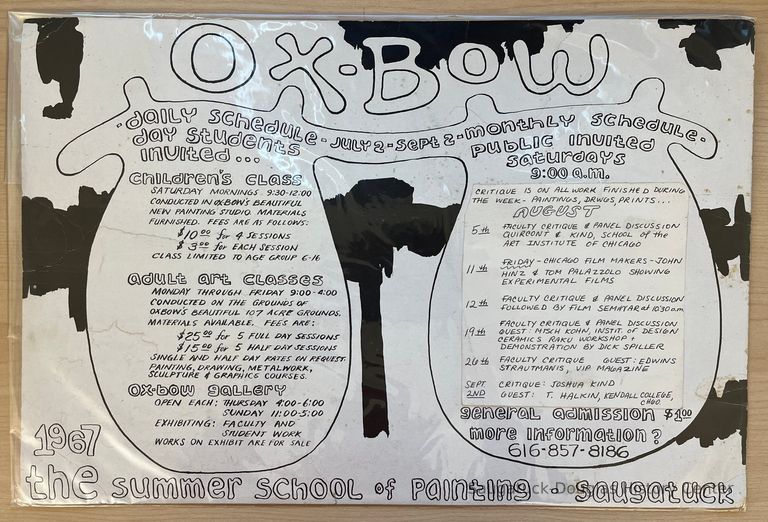 OX-BOW
-daily schedule-
day students
invited...
-July 2-Sept 2-
monthly schedule-
public invited
saturdays
9:00 a.m.
children's class
SATURDAY MORNINGS 9:30-12:00
CONDUCTED IN OXBOW'S BEAUTIFUL
NEW PAINTING STUDIO. MATERIALS
FURNISHED. FEES ARE AS FOLLOWS:
$10.00 for 4 SESSIONS
$3.00 for EACH SESSION
CLASS LIMITED TO AGE GROUP 6-16
adult art classes
MONDAY THROUGH FRIDAY 9:00-4:00
CONDUCTED ON THE GROUNDS OF
OXBOWS BEAUTIFUL 107 ACRE GROUNDS.
MATERIALS AVAILABLE. FEES ARE:
$25.00 for 5 FULL DAY SESSIONS
$15.00 for 5 HALF DAY SESSIONS
SINGLE AND HALF DAY RATES ON REQUEST.
PAINTING, DRAWING, METALWORK,
SCULPTURE & GRAPHICS COURSES.
OX-BOW gallery
OPEN EACH: THURSDAY 4:00-6:00
SUNDAY 11:00-5:00
EXHIBITING: FACULTY AND
STUDENT WORK
WORKS ON EXHIBIT ARE FOR SALE
CRITIQUE IS ON ALL WORK FINISHED DURING
THE WEEK- PAINTINGS, DRWGS, PRINTS...
AUGUST
5th FACULTY CRITIQUE & PANEL DISCUSSION
QUIRCONT & KIND, SCHOOL of the
ART INSTITUTE OF CHICAGO
11th FRIDAY - CHICAGO FILM MAKERS - JOHN
HINZ & TOM PALAZZOLO SHOWING
EXPERIMENTAL FILMS
12th FACULTY CRITIQUE & PANEL DISCUSSION
FOLLOWED BY FILM SEMINAR at 10:30am
19th FACULTY CRITIQUE & PANEL DISCUSSION
GUEST: MISCH KOHN, INSTIT. of DESIGN
CERAMICS RAKU WORKSHOP &
DEMONSTRATION BY DICK SPILLER
26th FACULTY CRITIQUE GUEST: EDWINS
STRAUTMANIS, VIP MAGAZINE
SEPT CRITIQUE: JOSHUA KIND
2ND GUEST: T. HALKIN, KENDALL COLLEGE,
CHGO
general admission $1.00
more information?
616-857-8186
1967
the summer school of painting - saugatuck